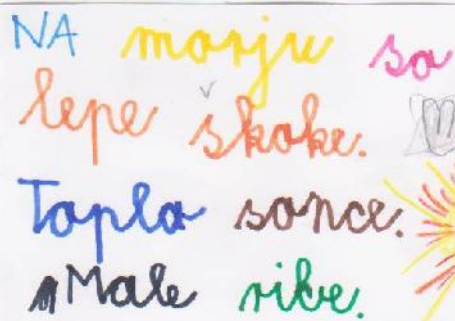 NA morju so
lepe školke.
Toplo sonce.
Male ribe.